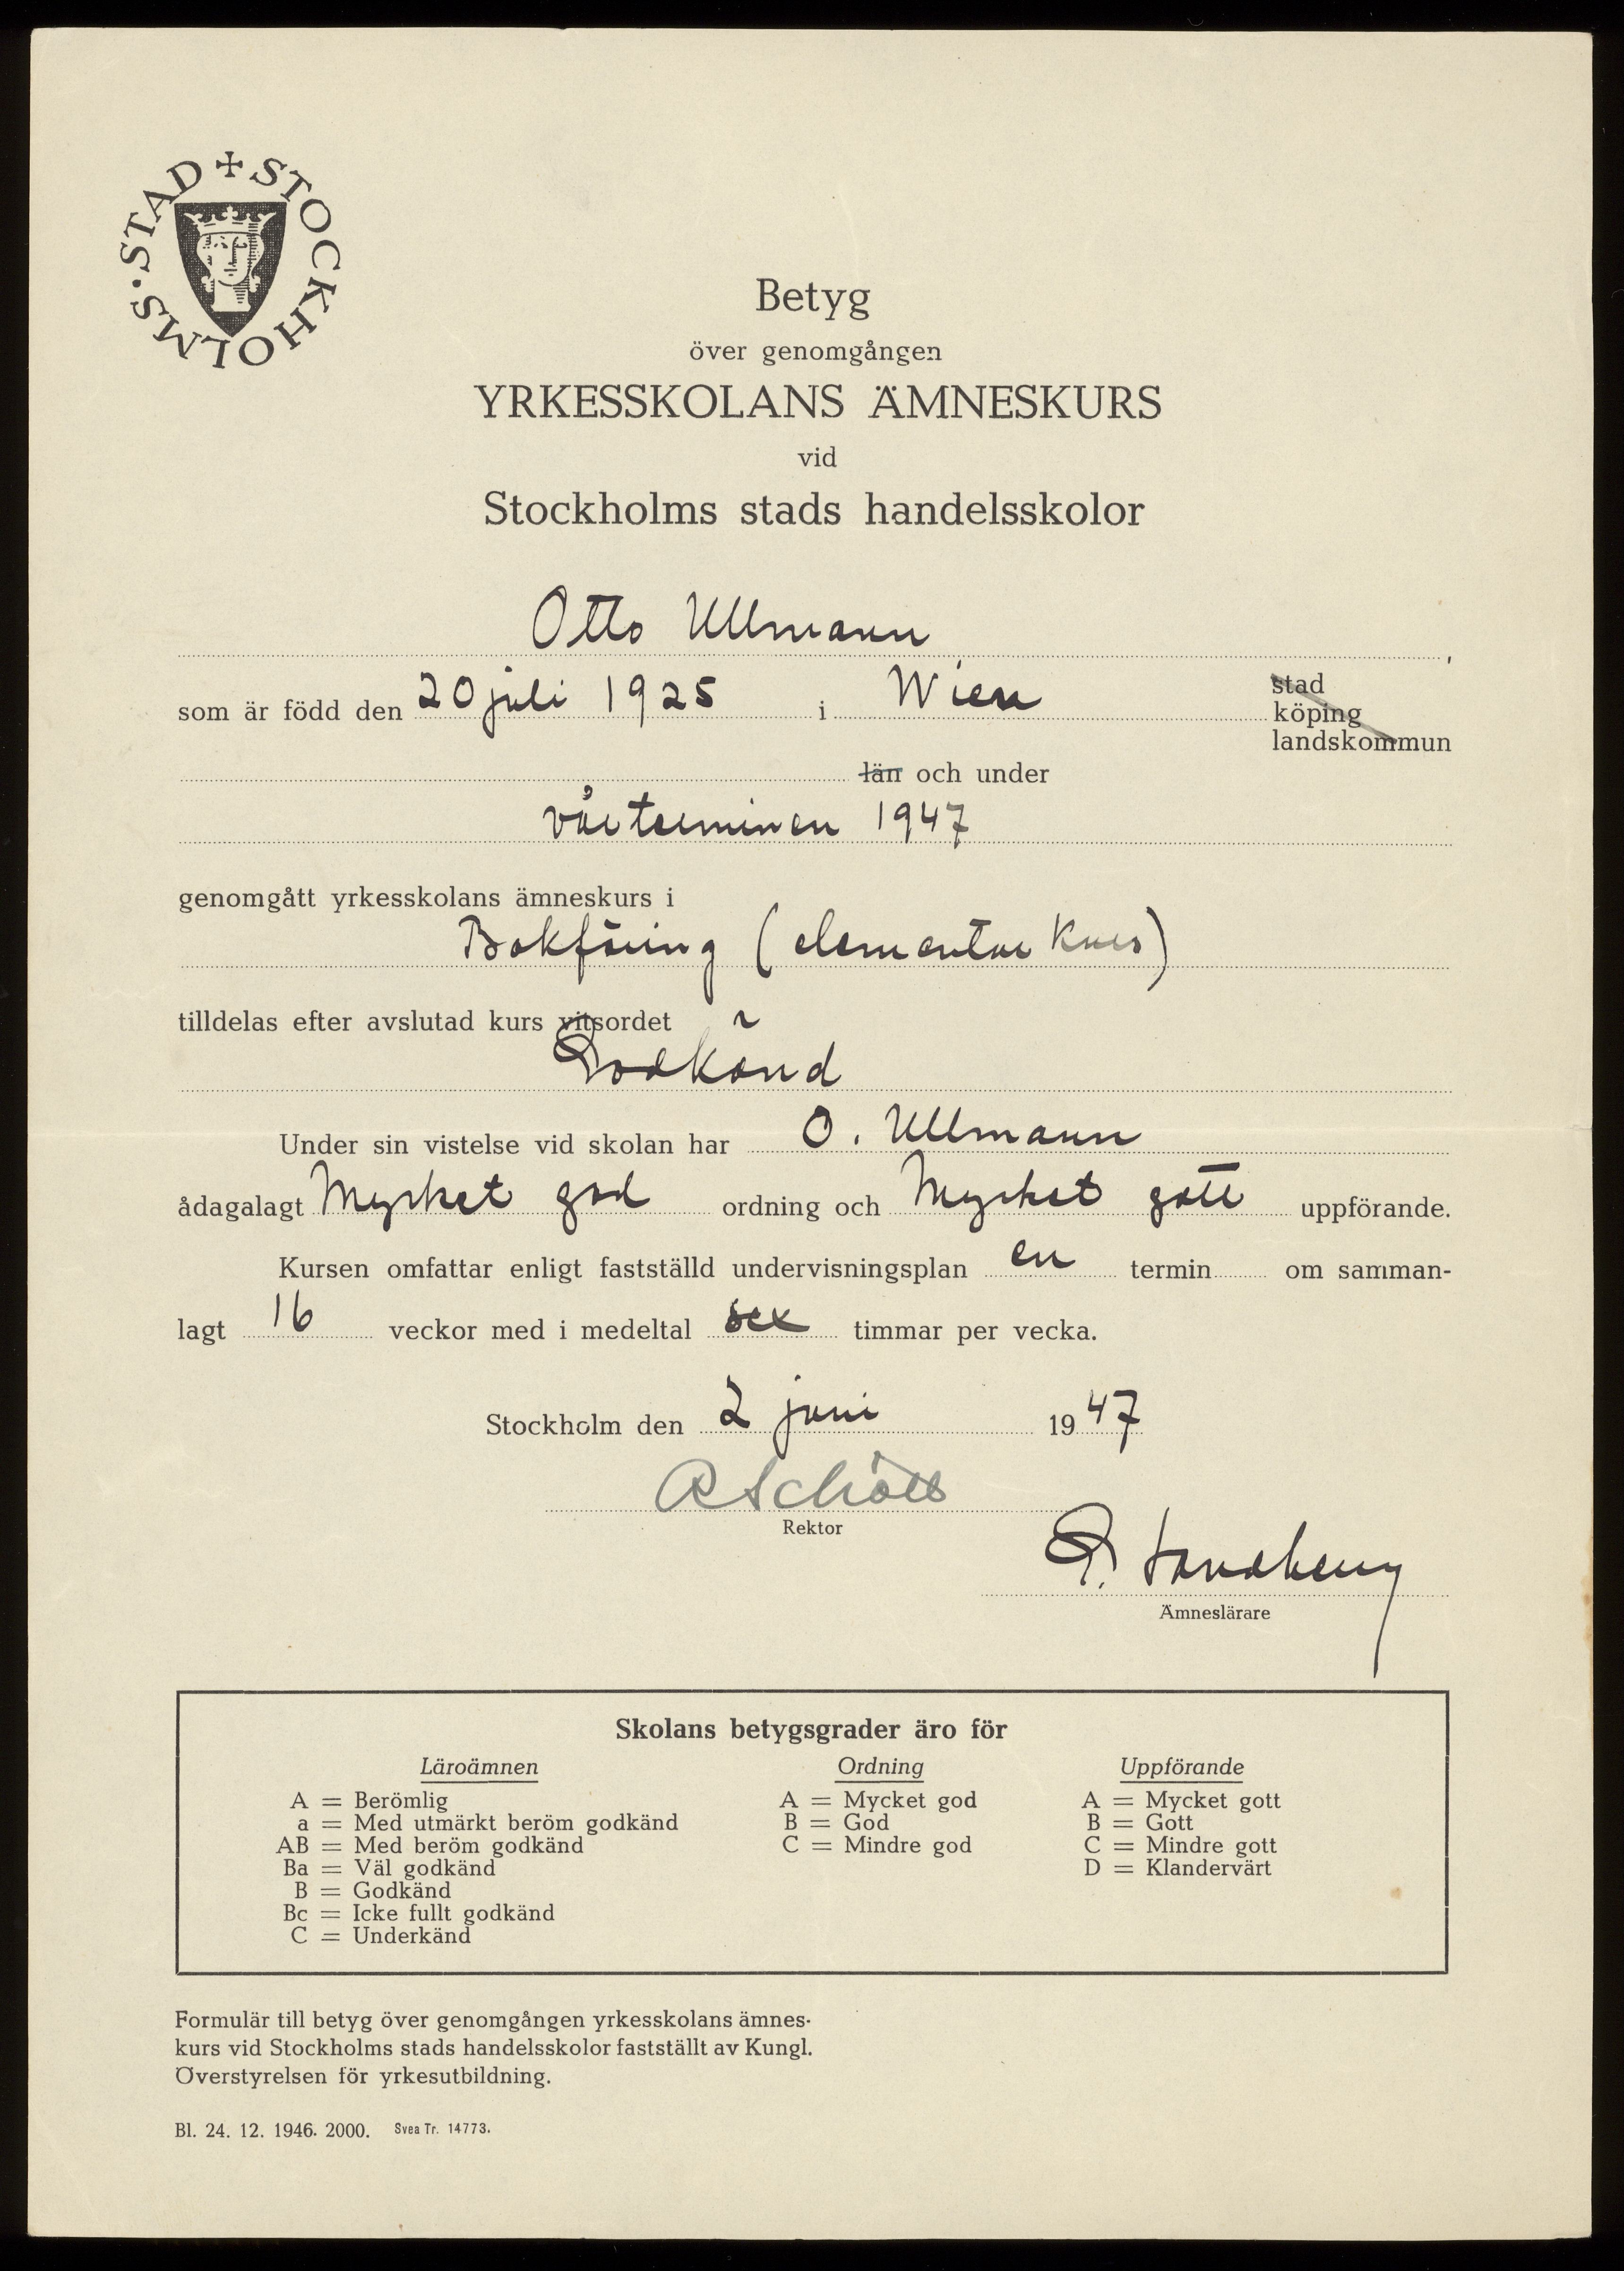 STOCKHOLMS · STAD
Betyg
över genomgången
YRKESSKOLANS ÄMNESKURS
vid
Stockholms stads handelsskolor
Otto Ullmann,
som är född den 20 juli 1925 i Wien stad
köping
landskommun
län och under
vårterminen 1947
genomgått yrkesskolans ämneskurs i
Bokföring (elementar kurs)
tilldelas efter avslutad kurs vitsordet
Godkänd
Under sin vistelse vid skolan har O. Ullmann
ådagalagt Mycket god ordning och Mycket gott uppförande.
Kursen omfattar enligt fastställd undervisningsplan en termin om samman-
lagt 16 veckor med i medeltal sex timmar per vecka.
Stockholm den 2 juni 1947
Rektor
G. Sandberg
Ämneslärare
Skolans betygsgrader äro för
Läroämnen Ordning Uppförande
A = Berömlig A = Mycket god A = Mycket gott
a = Med utmärkt beröm godkänd B = God B = Gott
AB = Med beröm godkänd C = Mindre god C = Mindre gott
Ba = Väl godkänd D = Klandervärt
B = Godkänd
Bc = Icke fullt godkänd
C = Underkänd
Formulär till betyg över genomgången yrkesskolans ämnes-
kurs vid Stockholms stads handelsskolor fastställt av Kungl.
Överstyrelsen för yrkesutbildning.
Bl. 24. 12. 1946. 2000. Svea Tr. 14773.